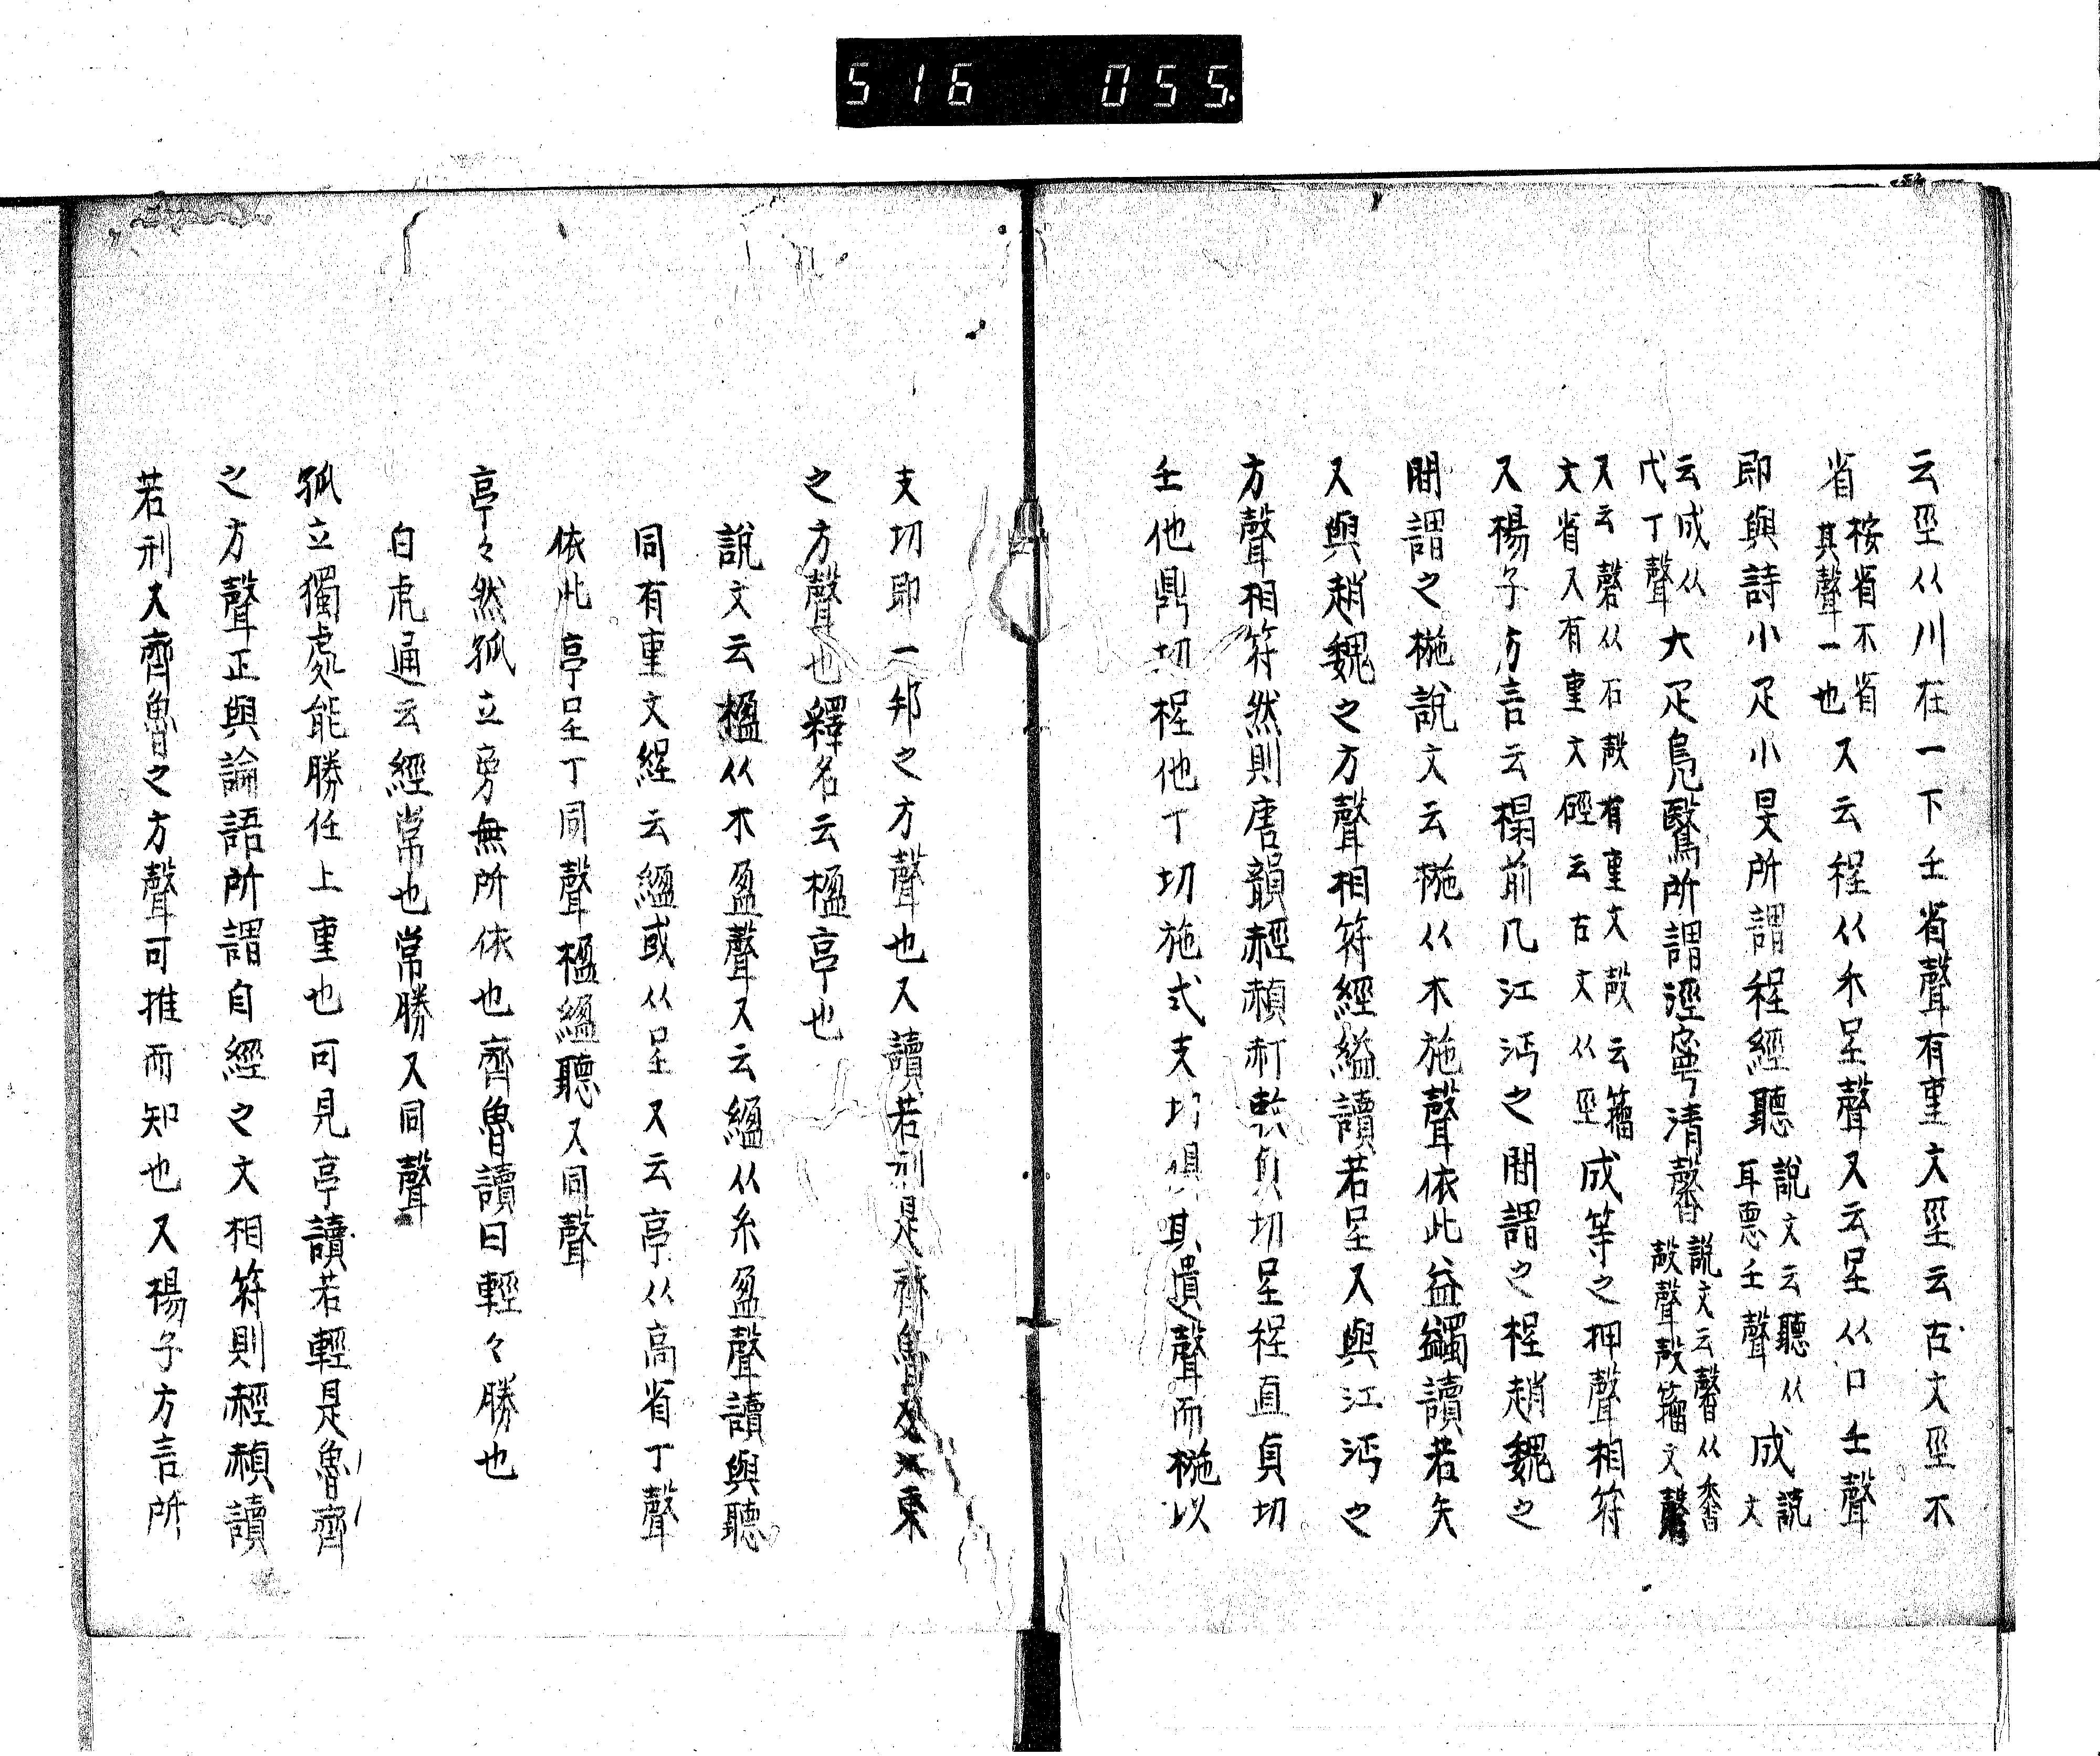 516 055.
云巠从川在一下壬省聲有重文巠云古文巠不
省桉省不省其聲一也又云桯从禾呈聲又云呈从口壬聲
即與詩小疋小旻所謂程經聽說文云聽从耳悳壬聲成說文
云成从戊丁聲大疋鳧鷖所謂涇寧清馨說文云馨从黍香殸聲殸籀文磬
又云磬从石殸有重文殸云籀文省又有重文硜云古文从巠成等之押聲相符
又楊子方言云榻前几江沔之間謂之桯趙魏之
間謂之椸說文云椸从木施聲依此益蠲讀若矢
又與趙魏之方聲相符經縊讀若呈又與江沔之
方聲相符然則唐韻䞓赬杠䡖貞切呈程直貞切
壬他鼎切桯他丁切施式支切俱其遺聲而椸以
支切即一邦之方聲也又讀若刑是齊魯及東
之方聲也釋名云楹亭也
說文云楹从木盈聲又云縕从糸盈聲讀與聽
同有重文䋼云縕或从呈又云亭从高省丁聲
依此亭呈丁同聲楹縕聽又同聲
亭々然孤立旁無所依也齊魯讀曰輕々勝也
白虎通云經常也常勝又同聲
孤立獨處能勝任上重也可見亭讀若輕是魯齊
之方聲正與論語所謂自經之文相符則䞓赬讀
若刑又齊魯之方聲可推而知也又楊子方言所